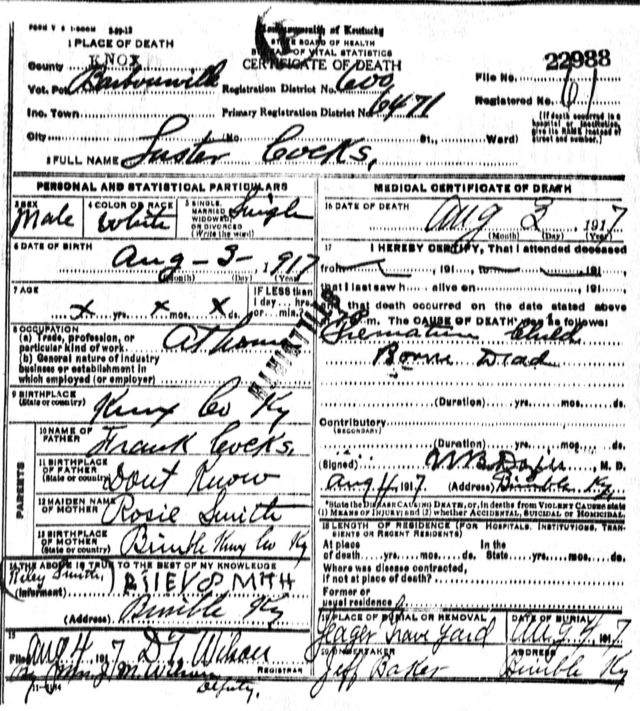 FORM V S 1-500M 3-29-13
Commonwealth of Kentucky
STATE BOARD OF HEALTH
BUREAU OF VITAL STATISTICS
CERTIFICATE OF DEATH
1 PLACE OF DEATH
County KNOX
Vot. Pct. Barbourville Registration District No. 600
Inc. Town Primary Registration District No. 6471
City (No. St., Ward)
File No. 22988
Registered No. 61
(If death occurred in a hospital or institution, give its NAME instead of street and number.)
2 FULL NAME Luster Cocks,
PERSONAL AND STATISTICAL PARTICULARS
3 SEX Male
4 COLOR OR RACE White
5 SINGLE, MARRIED, WIDOWED, OR DIVORCED (Write the word) Single
6 DATE OF BIRTH
Aug - 3 - 1917
(Month) (Day) (Year)
7 AGE IF LESS than
1 day ... hrs
x yrs. x mos. x ds. or ... min.?
8 OCCUPATION
(a) Trade, profession, or particular kind of work At home
(b) General nature of industry
business or establishment in
which employed (or employer)
9 BIRTHPLACE
(State or country) Knox Co Ky
PARENTS
10 NAME OF FATHER Frank Cocks.
11 BIRTHPLACE OF FATHER (State or country) Dont Know
12 MAIDEN NAME OF MOTHER Rosie Smith
13 BIRTHPLACE OF MOTHER (State or country) Bimble Knox Co Ky
14 THE ABOVE IS TRUE TO THE BEST OF MY KNOWLEDGE
(Riley Smith)
(Informant) RILEY SMITH
(Address) Bimble Ky
15
Filed Aug 4 1917 D T Wilson
REGISTRAR
By J. M. Wilson
Deputy.
STILLBIRTH
MEDICAL CERTIFICATE OF DEATH
16 DATE OF DEATH
Aug 3 1917
(Month) (Day) (Year)
17 I HEREBY CERTIFY, That I attended deceased
from 191 to 191
that I last saw h alive on 191
and that death occurred on the date stated above
m. The CAUSE OF DEATH was as follows:
Premature Child
Borne Dead
(Duration) yrs. mos. ds.
Contributory
(SECONDARY)
(Duration) yrs. mos. ds.
(Signed) M. D.
Aug 4 1917 (Address) Bimble Ky.
*State the DISEASE CAUSING DEATH, or, in deaths from VIOLENT CAUSES state
(1) MEANS OF INJURY; and (2) whether ACCIDENTAL, SUICIDAL or HOMICIDAL.
18 LENGTH OF RESIDENCE (FOR HOSPITALS, INSTITUTIONS, TRANSIENTS OR RECENT RESIDENTS)
At place In the
of death yrs. mos. ds. State yrs. mos. ds.
Where was disease contracted,
if not at place of death?
Former or
usual residence
19 PLACE OF BURIAL OR REMOVAL DATE OF BURIAL
Grave Yard Aug 4 1917
20 UNDERTAKER ADDRESS
Jeff Baker Bimble Ky